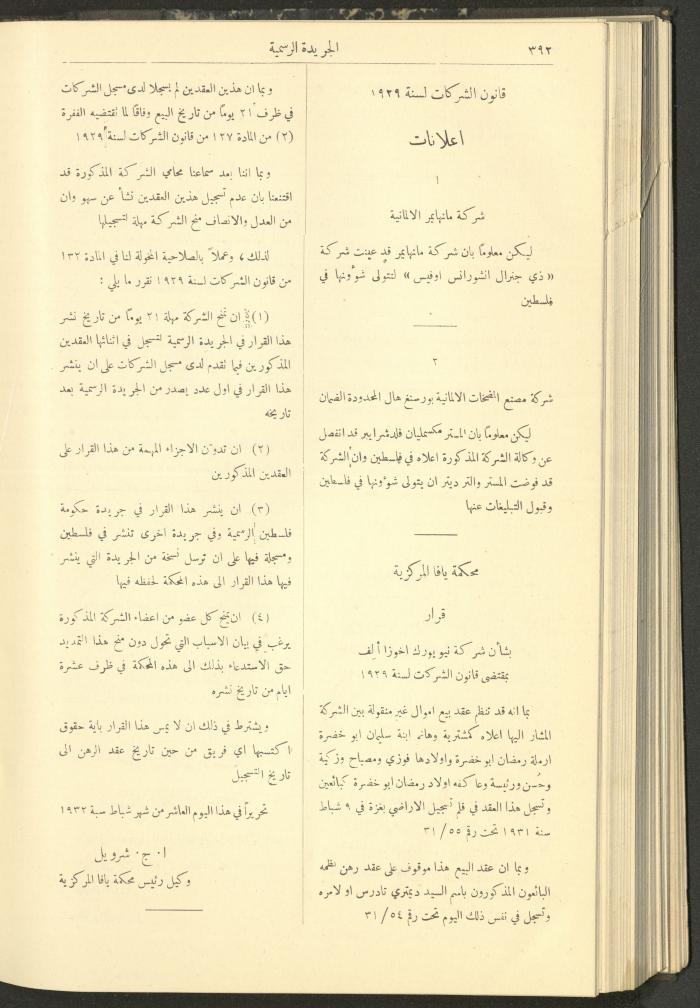 ٣٩٢
الجريدة الرسمية
قانون الشركات لسنة ١٩٢٩
اعلانات
١
شركة مانهايمر الالمانية
ليكن معلومًا بان شركة مانهايمر قد عينت شركة
« ذي جنرال انشورانس اوفيس » لتتولى شؤونها في
فلسطين
٢
شركة مصنع المضخات الالمانية بورسنغ هال المحدودة الضمان
ليكن معلومًا بان المستر مكسمليان فلدشرايبر قد انفصل
عن وكالة الشركة المذكورة اعلاه في فلسطين وان الشركة
قد فوضت المستر والتر ديتر ان يتولى شوءونها في فلسطين
وقبول التبليغات عنها
محكمة يافا المركزية
قرار
بشأن شركة نيويورك اخوزا ألف
بمقتضى قانون الشركات لسنة ١٩٢٩
بما انه قد تنظم عقد بيع اموال غير منقولة بين الشركة
المشار اليها اعلاه كمشترية وهانم ابنة سليمان ابو خضرة
ارملة رمضان ابو خضرة واولادها فوزي ومصباح وزكية
وحُسن ورئيسة وعاكفه اولاد رمضان ابو خضرة كبائعين
وتسجل هذا العقد في قلم تسجيل الاراضي بغزة في ٩ شباط
سنة ١٩٣١ تحت رقم ٥٥/ ٣١
وبما ان عقد البيع هذا موقوف على عقد رهن نظمه
البائعون المذكورون باسم السيد ديمتري تادرس او لامره
وتسجل في نفس ذلك اليوم تحت رقم ٥٤/ ٣١
وبما ان هذين العقدين لم يسجلا لدى مسجل الشركات
في ظرف ٢١ يومًا من تاريخ البيع وفاقًا لما تقتضيه الفقرة
(٢) من المادة ١٢٧ من قانون الشركات لسنة ١٩٢٩
وبما اننا بعد سماعنا محامي الشركة المذكورة قد
اقتنعنا بان عدم تسجيل هذين العقدين نشأ عن سهو وان
من العدل والانصاف منح الشركة مهلة لتسجيلها
لذلك ، وعملاً بالصلاحية المخولة لنا في المادة ١٣٢
من قانون الشركات لسنة ١٩٢٩ نقرر ما يلي :
(١) ان تمنح الشركة مهلة ٢١ يومًا من تاريخ نشر
هذا القرار في الجريدة الرسمية لتسجل في اثنائها العقدين
المذكورين فيما تقدم لدى مسجل الشركات على ان ينشر
هذا القرار في اول عدد يصدر من الجريدة الرسمية بعد
تاريخه
(٢) ان تدون الاجزاء المهمة من هذا القرار على
العقدين المذكورين
(٣) ان ينشر هذا القرار في جريدة حكومة
فلسطين الرسمية وفي جريدة اخرى تنشر في فلسطين
ومسجلة فيها على ان ترسل نسخة من الجريدة التي ينشر
فيها هذا القرار الى هذه المحكمة لحفظه فيها
(٤) ان يمنح كل عضو من اعضاء الشركة المذكورة
يرغب في بيان الاسباب التي تحول دون منح هذا التمديد
حق الاستدعاء بذلك الى هذه المحكمة في ظرف عشرة
ايام من تاريخ نشره
ويشترط في ذلك ان لا يمس هذا القرار باية حقوق
اكتسبها اي فريق من حين تاريخ عقد الرهن الى
تاريخ التسجيل
تحريرًا في هذا اليوم العاشر من شهر شباط سبة ١٩٣٢
ا . ج . شرويل
وكيل رئيس محكمة يافا المركزية